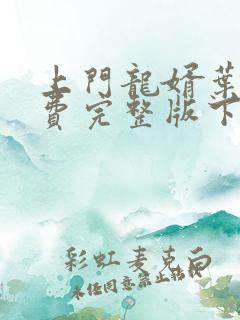 上門龍婿葉
費完整版下
彩虹麦克白
未经同意禁止转载